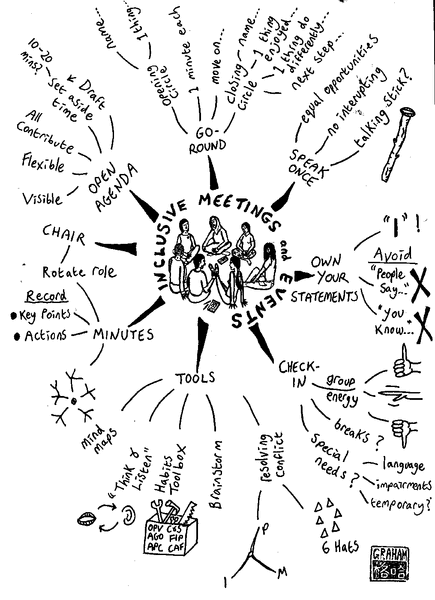 INCLUSIVE MEETINGS and EVENTS
GO-
ROUND
Opening
circle
name...
1 thing...
1 minute each
move on...
closing
circle
name...
1 thing
enjoyed...
1 thing do
differently...
next step...
SPEAK
ONCE
equal opportunities
no interupting
talking stick?
OWN
YOUR
STATEMENTS
"I" !
Avoid
"People
Say..."
"You
Know..."
CHECK-
IN
group
energy
breaks?
Special
needs?
language
impairments
temporary?
TOOLS
mind
maps
"Think &
Listen"
Habits
Toolbox
OPV C&S
AGO FIP
APC CAF
Brainstorm
resolving
conflict
P
I
M
6 Hats
MINUTES
Record
Key Points
Actions
CHAIR
Rotate role
OPEN
AGENDA
Draft
set aside
time
10-20
mins?
All
Contribute
Flexible
Visible
GRAHAM